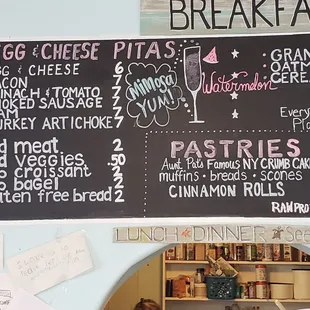 BREAKFA
GG & CHEESE PITAS
GG & CHEESE 6
ACON 7
INACH & TOMATO 7
MOKED SAUSAGE 7
AM 7
URKEY ARTICHOKE 7
Mimosa
YUM!
Watermelon
GRAN
OATM
CEREA
Every
D MEAT 2
D VEGGIES .50
O CROISSANT 2
O BAGEL 2
UTEN FREE BREAD 2
PASTRIES
Aunt Pats Famous NY CRUMB CAKE
muffins · breads · scones
CINNAMON ROLLS
RAW PRO
LUNCH & DINNER See